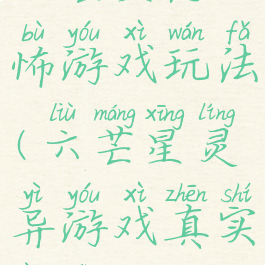 bù yóu xì wán fǎ
怖游戏玩法
liù máng xīng líng
(六芒星灵
yì yóu xì zhēn shí
异游戏真实